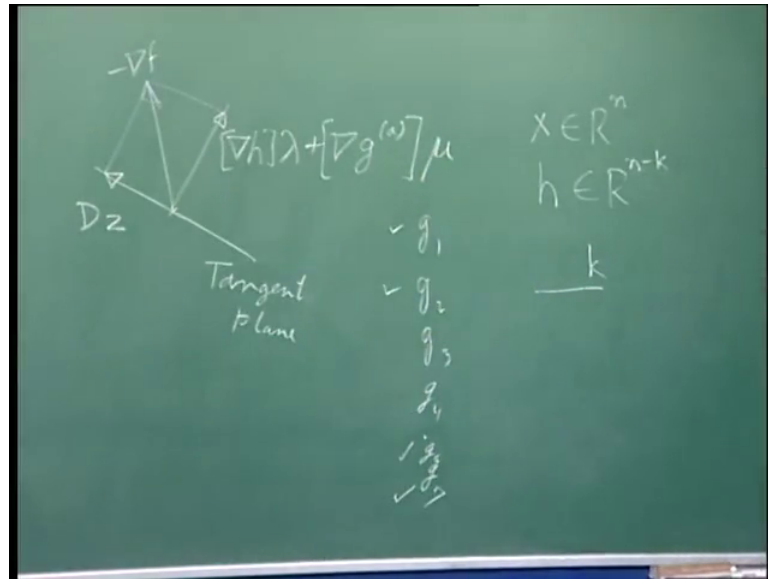 -∇f
[∇h]λ+[∇g^(a)]μ
Dz
Tangent
plane
✓ g₁
✓ g₂
g₃
g₄
x ∈ R^n
h ∈ R^n-k
k